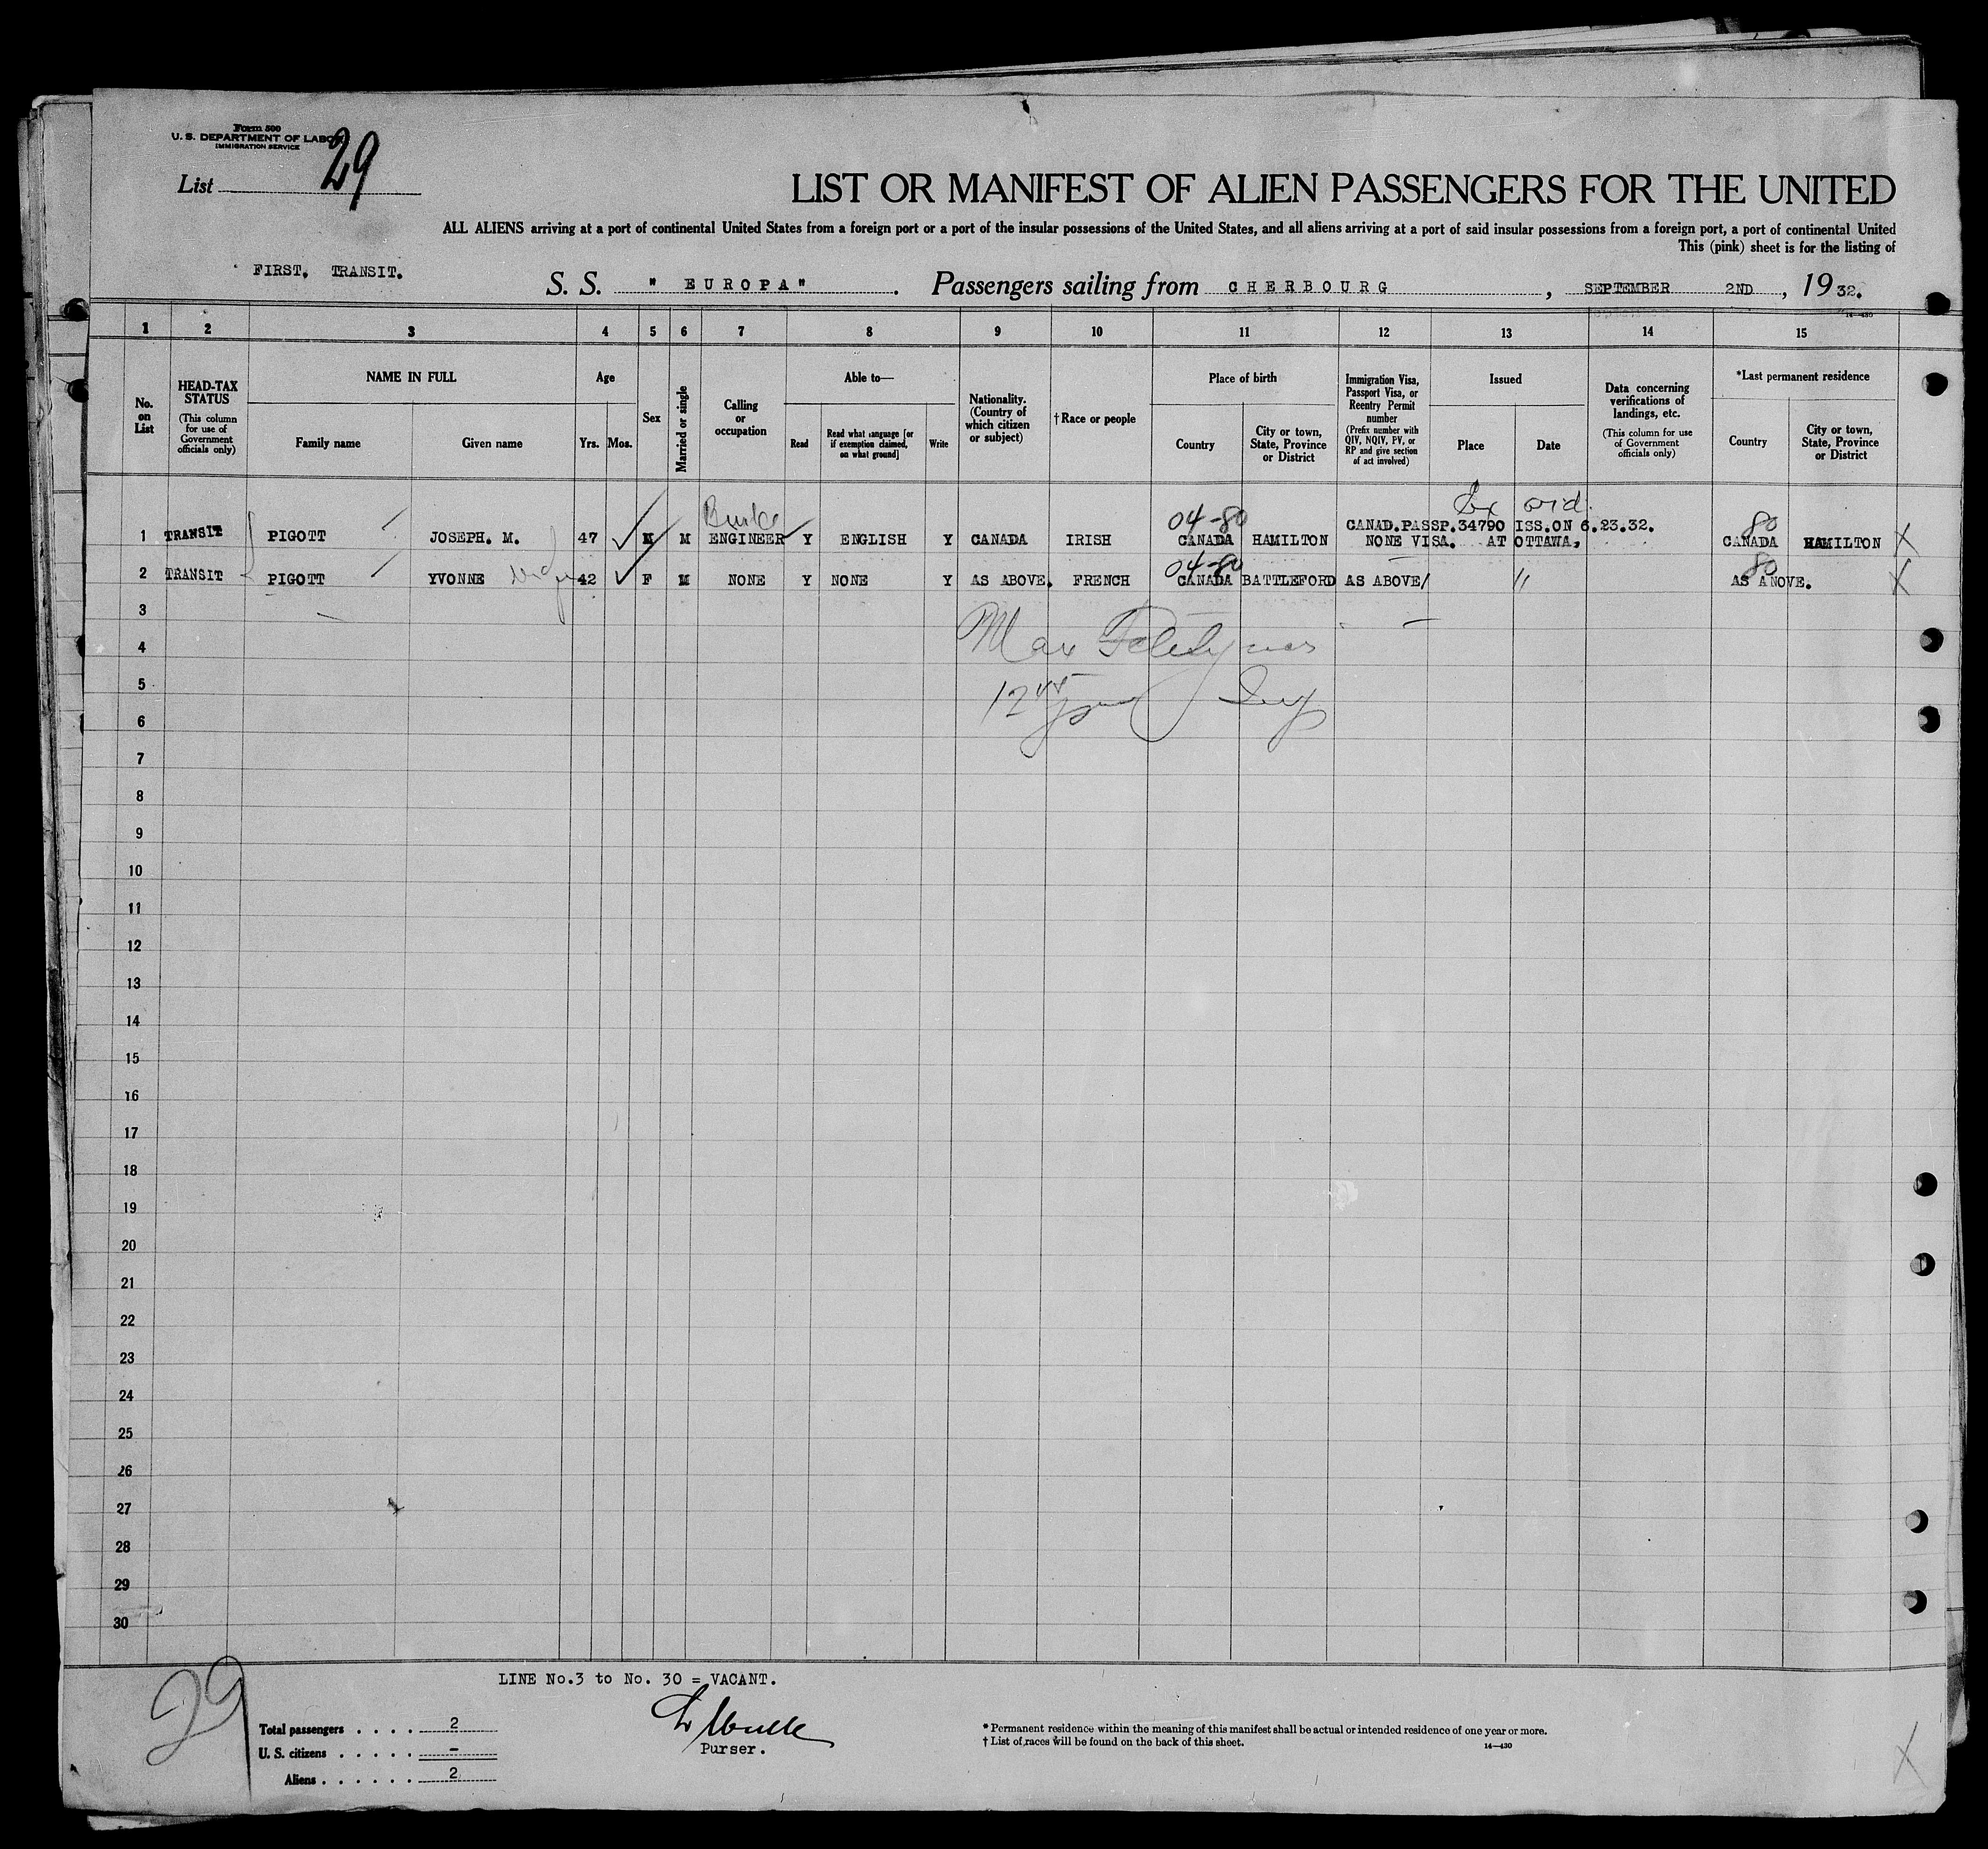 Form 500
U. S. DEPARTMENT OF LABOR
IMMIGRATION SERVICE
List 29
LIST OR MANIFEST OF ALIEN PASSENGERS FOR THE UNITED
ALL ALIENS arriving at a port of continental United States from a foreign port or a port of the insular possessions of the United States, and all aliens arriving at a port of said insular possessions from a foreign port, a port of continental United
This (pink) sheet is for the listing of
FIRST. TRANSIT.
S. S. " EUROPA" . Passengers sailing from CHERBOURG , SEPTEMBER 2ND , 19 32.
14—430
1 2 3 4 5 6 7 8 9 10 11 12 13 14 15
No. on List
HEAD-TAX STATUS (This column for use of Government officials only)
NAME IN FULL
Family name
Given name
Age
Yrs. Mos.
Sex
Married or single
Calling or occupation
Able to—
Read
Read what language [or if exemption claimed, on what ground]
Write
Nationality. (Country of which citizen or subject)
†Race or people
Place of birth
Country
City or town, State, Province or District
Immigration Visa, Passport Visa, or Reentry Permit number (Prefix number with QIV, NQIV, PV, or RP and give section of act involved)
Issued
Place
Date
Data concerning verifications of landings, etc. (This column for use of Government officials only)
*Last permanent residence
Country
City or town, State, Province or District
04-80 CANAD.PASSP.34790 ISS.ON 6.23.32. 80
1 TRANSIT PIGOTT JOSEPH. M. 47 M M ENGINEER Y ENGLISH Y CANADA IRISH CANADA HAMILTON NONE VISA. AT OTTAWA, CANADA HAMILTON X
04-80 80
2 TRANSIT PIGOTT YVONNE 42 F M NONE Y NONE Y AS ABOVE. FRENCH CANADA BATTLEFORD AS ABOVE/ " AS ANOVE. X
3
4
5
6
7
8
9
10
11
12
13
14
15
16
17
18
19
20
21
22
23
24
25
26
27
28
29
30
LINE No.3 to No. 30 = VACANT.
29
Total passengers . . . . 2
U. S. citizens . . . . . –
Aliens . . . . . . 2
Purser.
* Permanent residence within the meaning of this manifest shall be actual or intended residence of one year or more.
† List of races will be found on the back of this sheet.
14—430
X